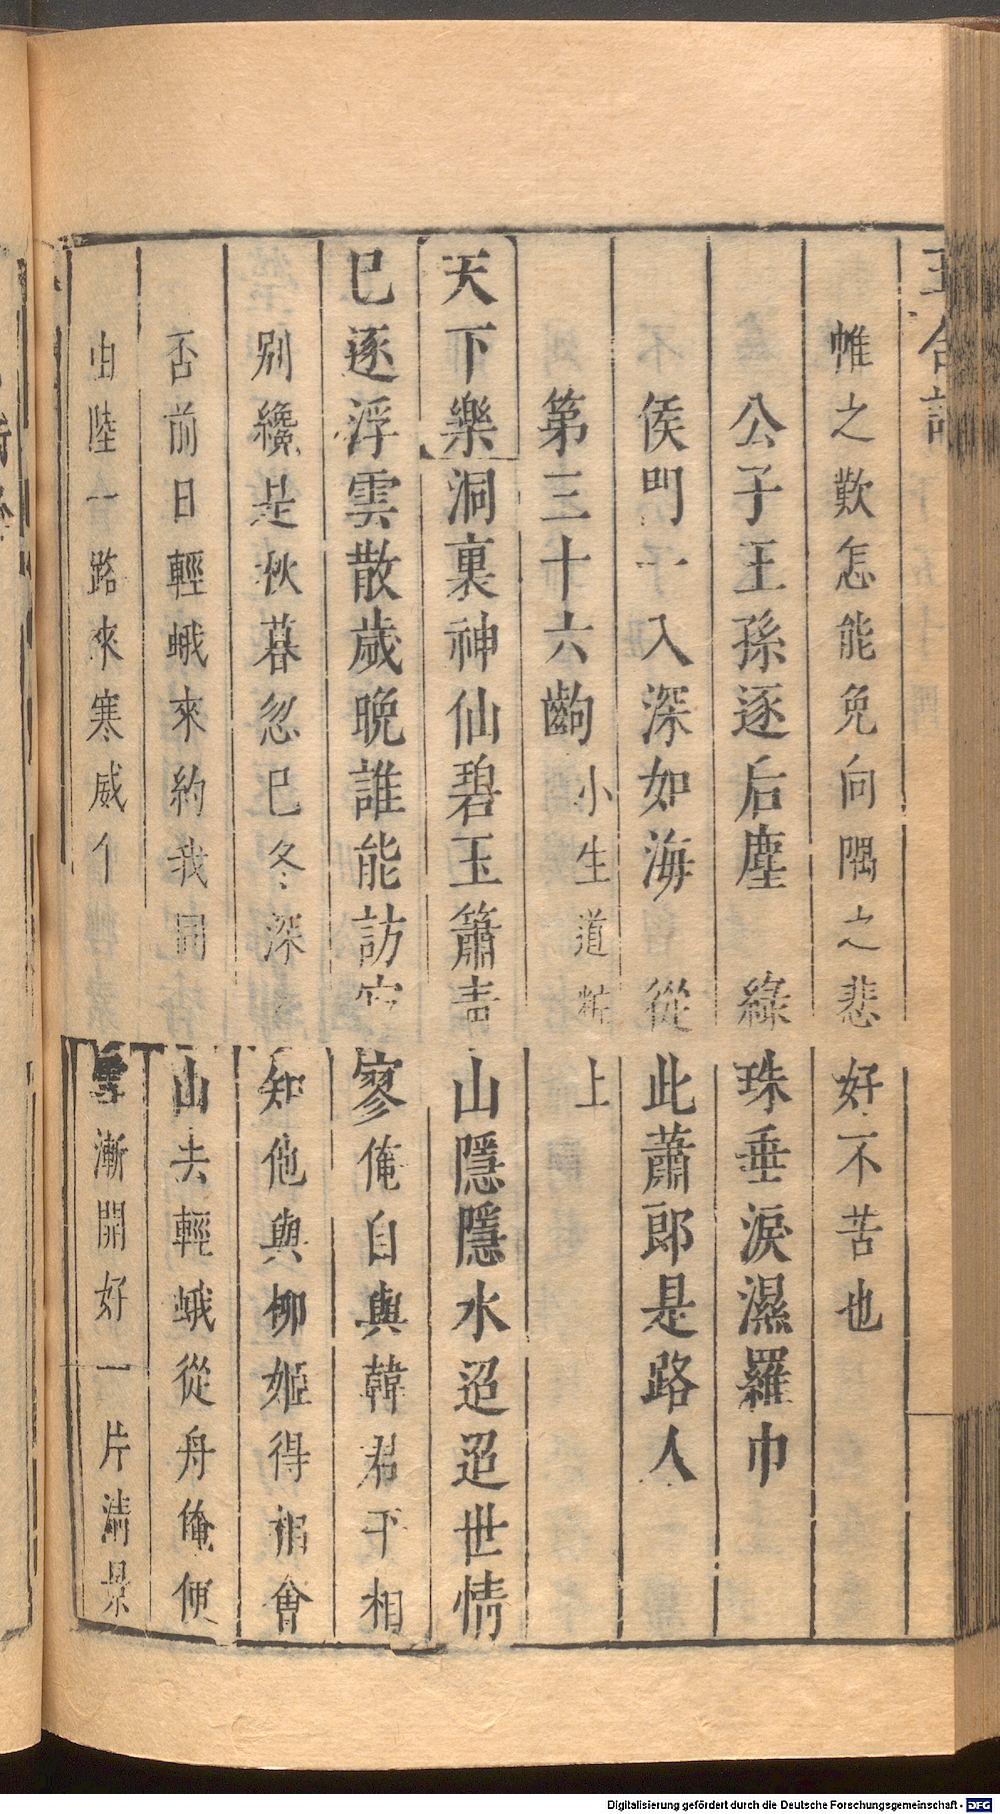 玉合記
帷之歎怎能免向隅之悲好不苦也
公子王孫逐后塵　綠珠垂淚濕羅巾
侯門一入深如海　從此蕭郎是路人
第三十六齣小生道粧上
天下樂洞裏神仙碧玉簫青山隱隱水迢迢世情
已逐浮雲散歲晚誰能訪寂寥俺自與韓君平相
別纔是秋暮忽已冬深知他與柳姬得相會
否前日輕蛾來約我同山去輕蛾從舟俺便
由陸一路來寒威乍雪漸開好一片清景
Digitalisierung gefördert durch die Deutsche Forschungsgemeinschaft - DFG